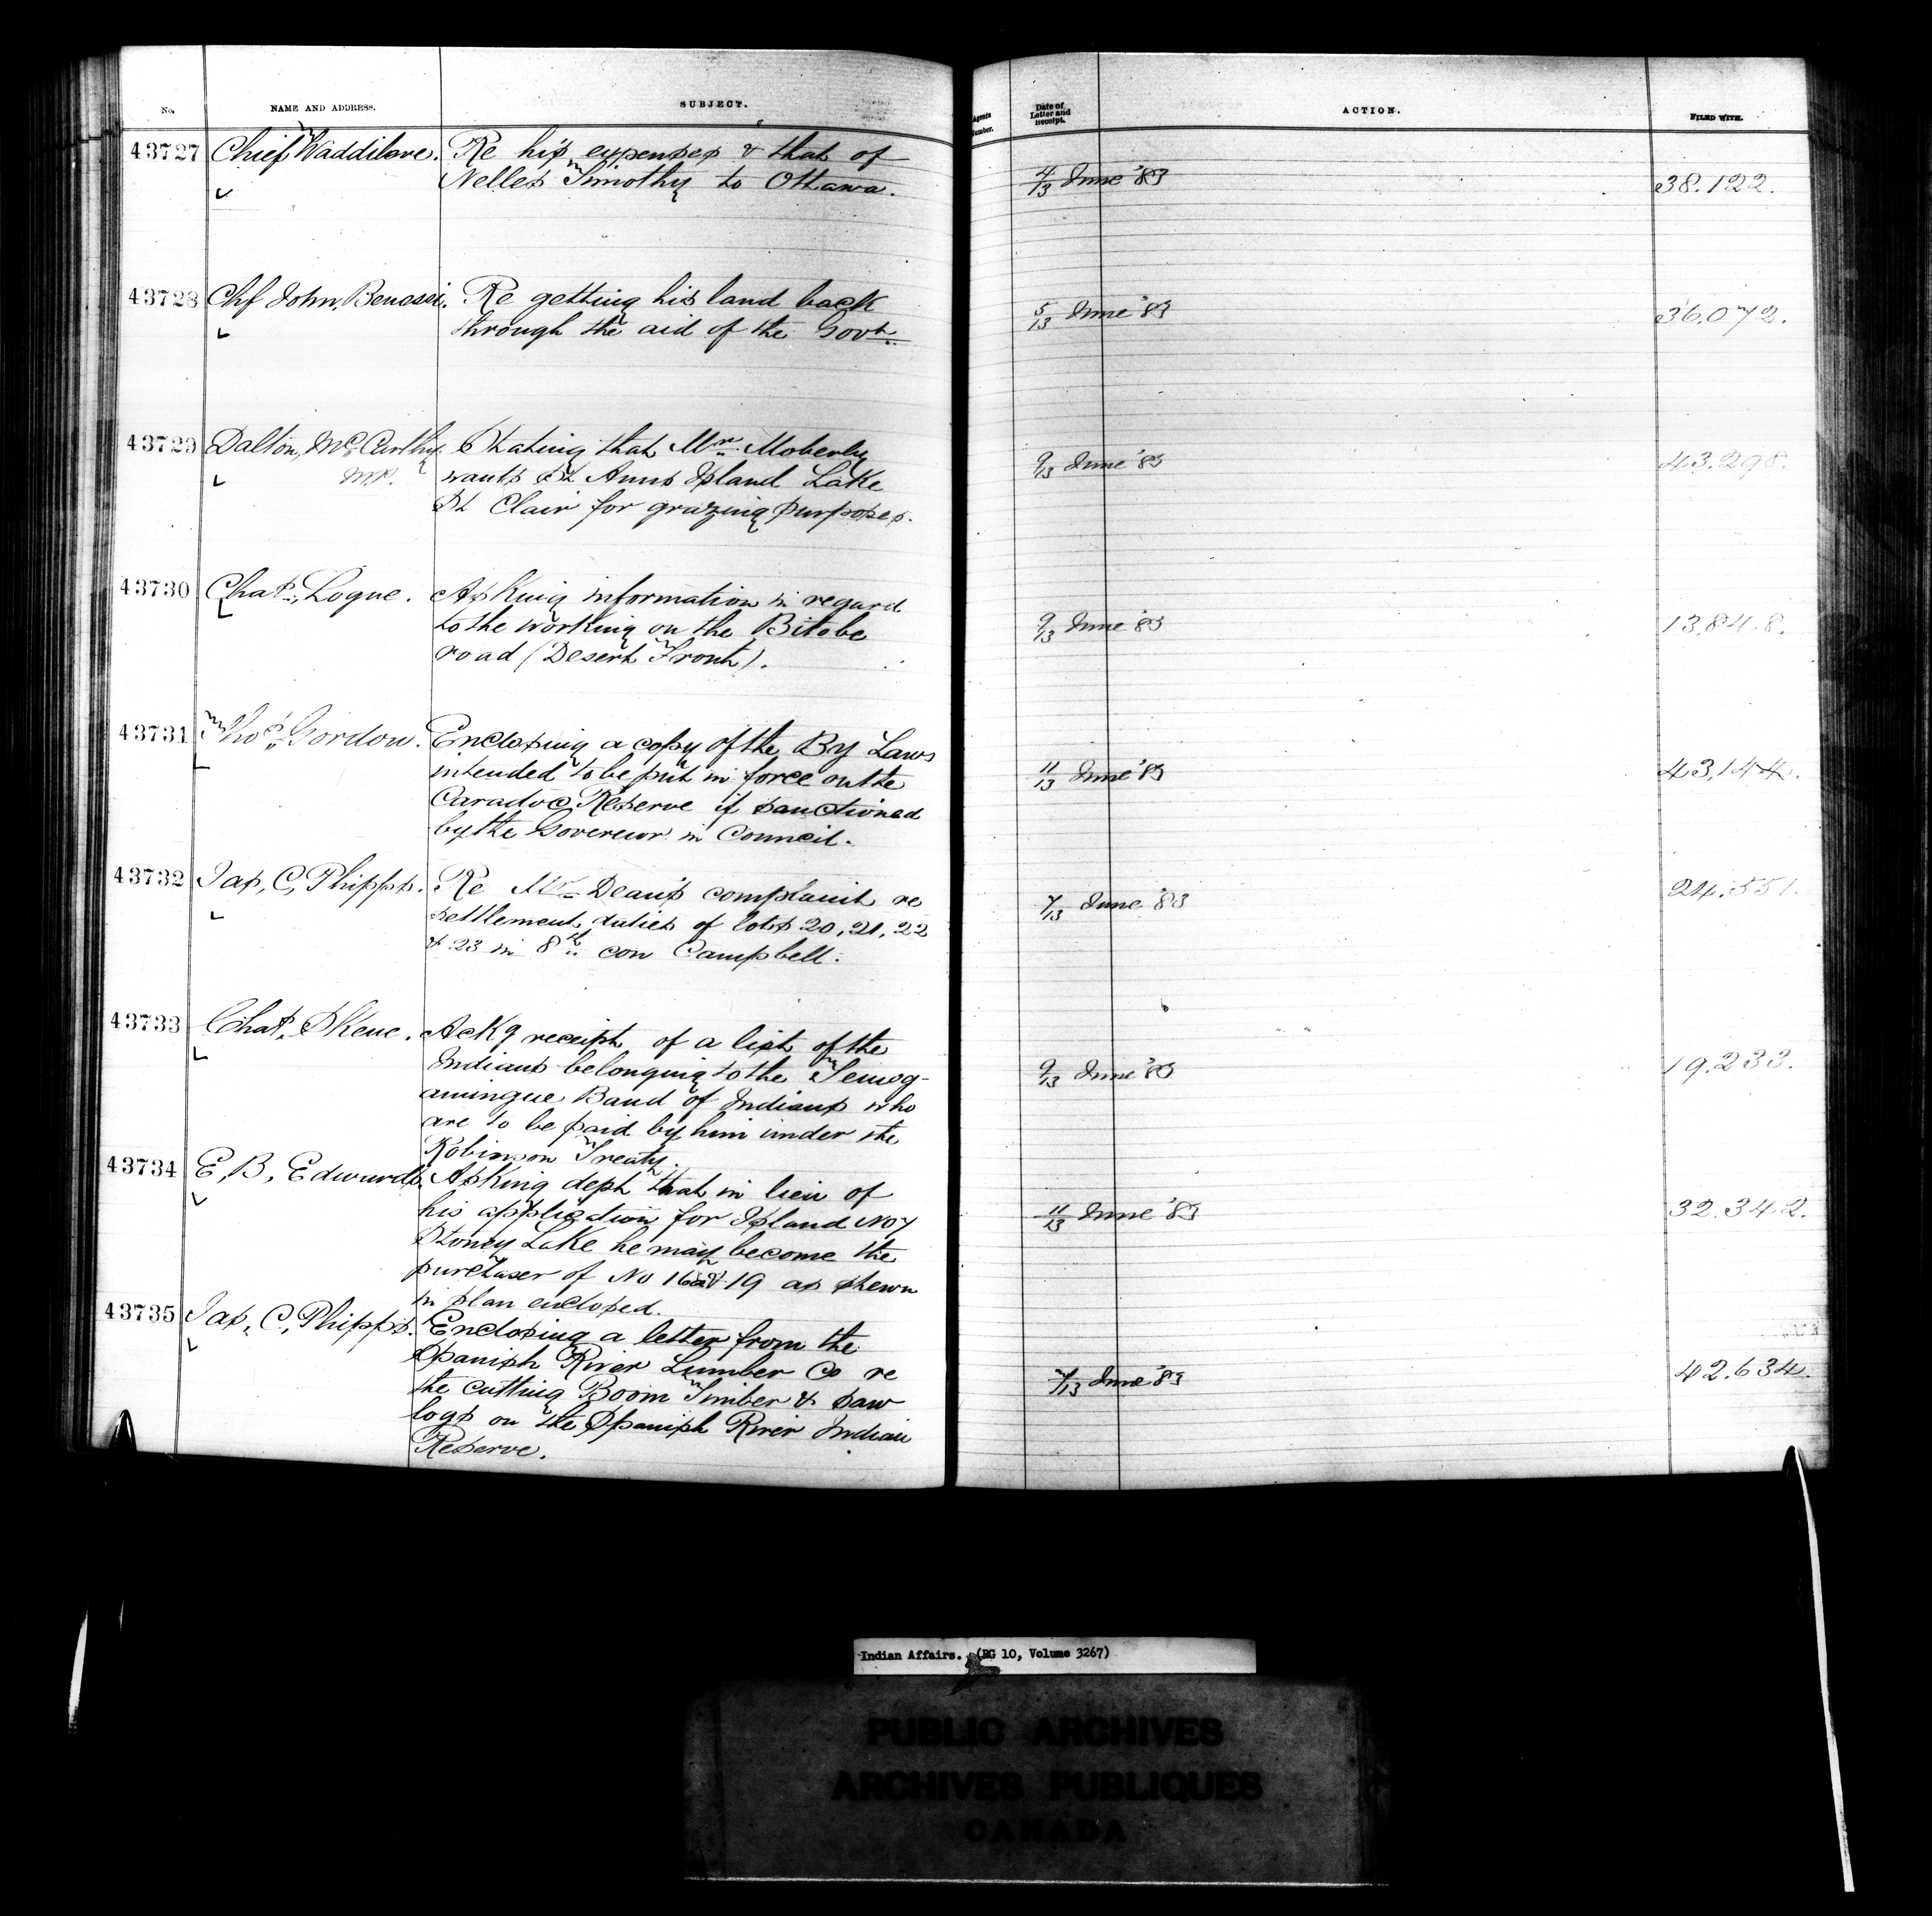 No. NAME AND ADDRESS. SUBJECT. Agents Number. Date of Letter and Receipt. ACTION. FILED WITH.
43727 Chief Waddilove. Re his expenses & that of
Nelles Timothy to Ottawa. 4/13 June '83 38.122.
43728 Chf John, Benessi. Re getting his land back
through the aid of the Govt. 5/13 June '83 36.072.
43729 Dalton, McCarthy. Stating that Mr Moberly
M.P. wants St Anns Island Lake 9/13 June '83 43.298.
St Clair for grazing purposes.
43730 Chas., Logue. Asking information in regard
to the working on the Bitobe 9/13 June '83 13,84.8.
road (Desert Front).
43731 Thos, Gordon. Enclosing a copy of the By Laws
intended to be put in force on the 11/13 June '83 43,144.
Caradoc Reserve if sanctioned
by the Governor in Council.
43732 Jas, C, Phipps. Re Mr Dean's complaint re 24.551.
settlement duties of lots 20, 21, 22 7/13 June '83
& 23 in 8th con Campbell.
43733 Chas, Skene. Ackg receipt of a list of the
Indians belonging to the Temog- 9/13 June '83 19.233.
amingue Band of Indians who
are to be paid by him under the
Robinson Treaty.
43734 E, B, Edwards. Asking dept that in lieu of
his application for Island No 7 11/13 June '83 32.342.
Stoney Lake he may become the
purchaser of No 16 & 19 as shewn
in plan enclosed.
43735 Jas, C, Phipps. Enclosing a letter from the
Spanish River Lumber Co re 7/13 June '83 42.634.
the cutting Boom Timber & saw
logs on the Spanish River Indian
Reserve.
Indian Affairs. (RG 10, Volume 3267)
PUBLIC ARCHIVES
ARCHIVES PUBLIQUES
CANADA